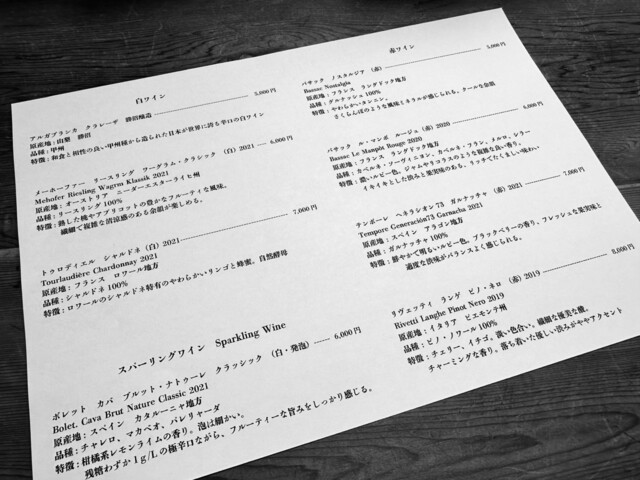 白ワイン
アルガブランカ クラレーザ 勝沼醸造 5,000円
原産地：山梨 勝沼
品種：甲州
特徴：和食と相性の良い甲州種から造られた日本が世界に誇る辛口の白ワイン
メーホーファー リースリング ワーグラム・クラシック (白) 2021 6,000円
Mehofer Riesling Wagrm Klassik 2021
原産地：オーストリア ニーダーエスターライヒ州
品種：リースリング 100%
特徴：熟した桃やアプリコットの豊かなフルーティな風味。
繊細で複雑な清涼感のある余韻が楽しめる。
トゥロディエル シャルドネ (白) 2021 7,000円
Tourlaudière Chardonnay 2021
原産地：フランス ロワール地方
品種：シャルドネ 100%
特徴：ロワールのシャルドネ特有のやわらかいリンゴと蜂蜜。自然酵母
スパーリングワイン Sparkling Wine
ボレット カバ ブルット・ナトゥーレ クラッシック (白・発泡) 6,000円
Bolet. Cava Brut Nature Classic 2021
原産地：スペイン カタルーニャ地方
品種：チャレロ、マカベオ、パレリャーダ
特徴：柑橘系レモンライムの香り。泡は細かい。
残糖わずか1g/Lの極辛口ながら、フルーティーな旨みをしっかり感じる。
赤ワイン
バサック ノスタルジア (赤) 5,000円
Bassac Nostalgia
原産地：フランス ラングドック地方
品種：グルナッシュ 100%
特徴：やわらかいタンニン。
さくらんぼのような風味とミネラルが感じられる。クールな余韻
バサック ル・マンポ ルージュ (赤) 2020 6,000円
Bassac Le Manpót Rouge 2020
原産地：フランス ラングドック地方
品種：カベルネ・ソーヴィニヨン、カベルネ・フラン、メルロ、シラー
特徴：濃いルビー色。ジャムやリコリスのような複雑な良い香り。
イキイキとした渋みと果実味のある、リッチでたくましい味わい
テンポーレ ヘネラシオン73 ガルナッチャ (赤) 2021 7,000円
Tempore Generación73 Garnacha 2021
原産地：スペイン アラゴン地方
品種：ガルナッチャ 100%
特徴：鮮やかで明るいルビー色。ブラックベリーの香り。フレッシュな果実味と
適度な渋味がバランスよく感じられる。
リヴェッティ ラング ピノ・ネロ (赤) 2019 8,000円
Rivetti Langhe Pinot Nero 2019
原産地：イタリア ピエモンテ州
品種：ピノ・ノワール 100%
特徴：チェリー、イチゴ。淡い色合い。繊細な優美な酸。
チャーミングな香り。落ち着いた優しい渋みがややアクセント